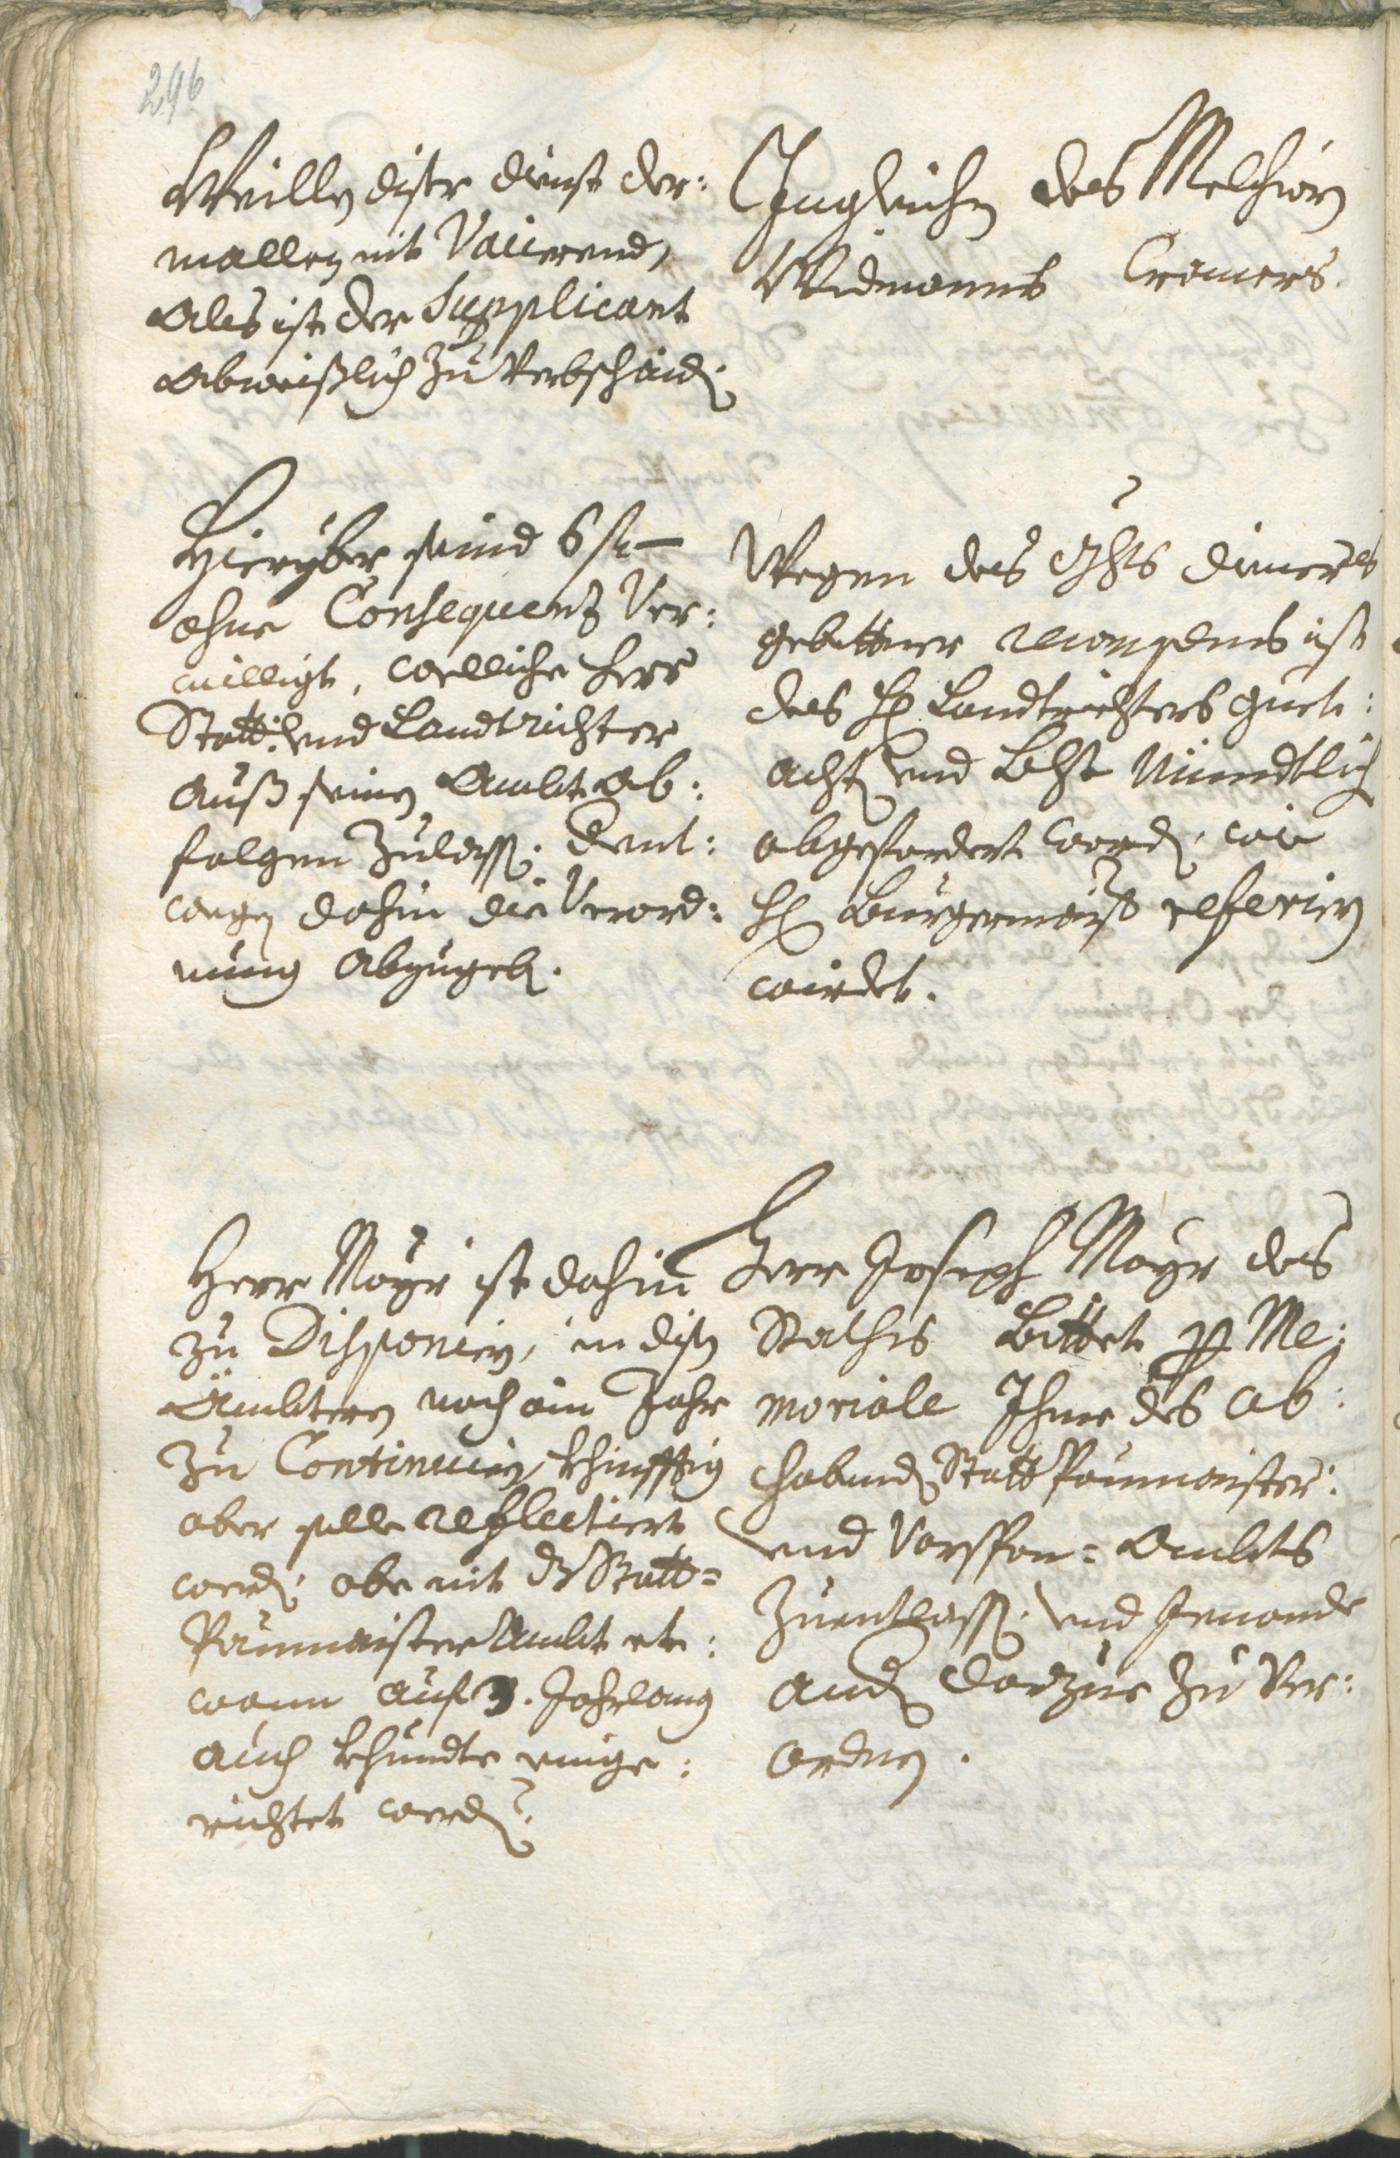 296
Weillen diser dienst der:
mallen nit Vacierend,
Als ist der Supplicant
Abweißlich zu Verbschaiden.
Ingleichen des Melchiorn
Widmanns Cramers.
Hieryber seind 6 fl —
ohne Consequenz Ver:
willigt, welliche Herr
Statt: und Landtrichter
auß seinen Ambt ab:
folgen zulassen. Dent:
wegen dahin die Verord:
nung Abzugeben.
Wegen des Gerichts dieners
gebettner recompens ist
des H: Landtrichters guet:
achten und Mündtlich
abgefordert worden, wie
H: Burgermaister referiern
wirdet.
Herr Mayr ist dahin
zu Disponiern, in disen
Ämbtern noch ain Jahr
zu Continuiern, khünfftig
aber solle reflectiert
werden, ob nit das Statt=
Paumaister Ambt et:
wann auf 3. Jahrlang
auch khundte einge:
richtet werden.
Herr Joseph Mayr des
Raths bittet per Me:
moriale Ihme des ob:
habenden Statt Paumaister:
und Vorspan= Ambts
Zuentlassen, und Jemande
andern darzue zu Ver:
ordnen.